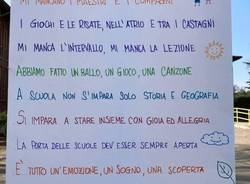 MI MANCANO I MAESTRI E I COMPAGNI
I GIOCHI E LE RISATE, NELL'ATRIO E TRA I CASTAGNI
MI MANCA L'INTERVALLO, MI MANCA LA LEZIONE
ABBIAMO FATTO UN BALLO, UN GIOCO, UNA CANZONE
A SCUOLA NON S'IMPARA SOLO STORIA E GEOGRAFIA
SI IMPARA A STARE INSIEME CON GIOIA ED ALLEGRIA
LA PORTA DELLE SCUOLE DEV'ESSER SEMPRE APERTA
È TUTTO UN'EMOZIONE, UN SOGNO, UNA SCOPERTA